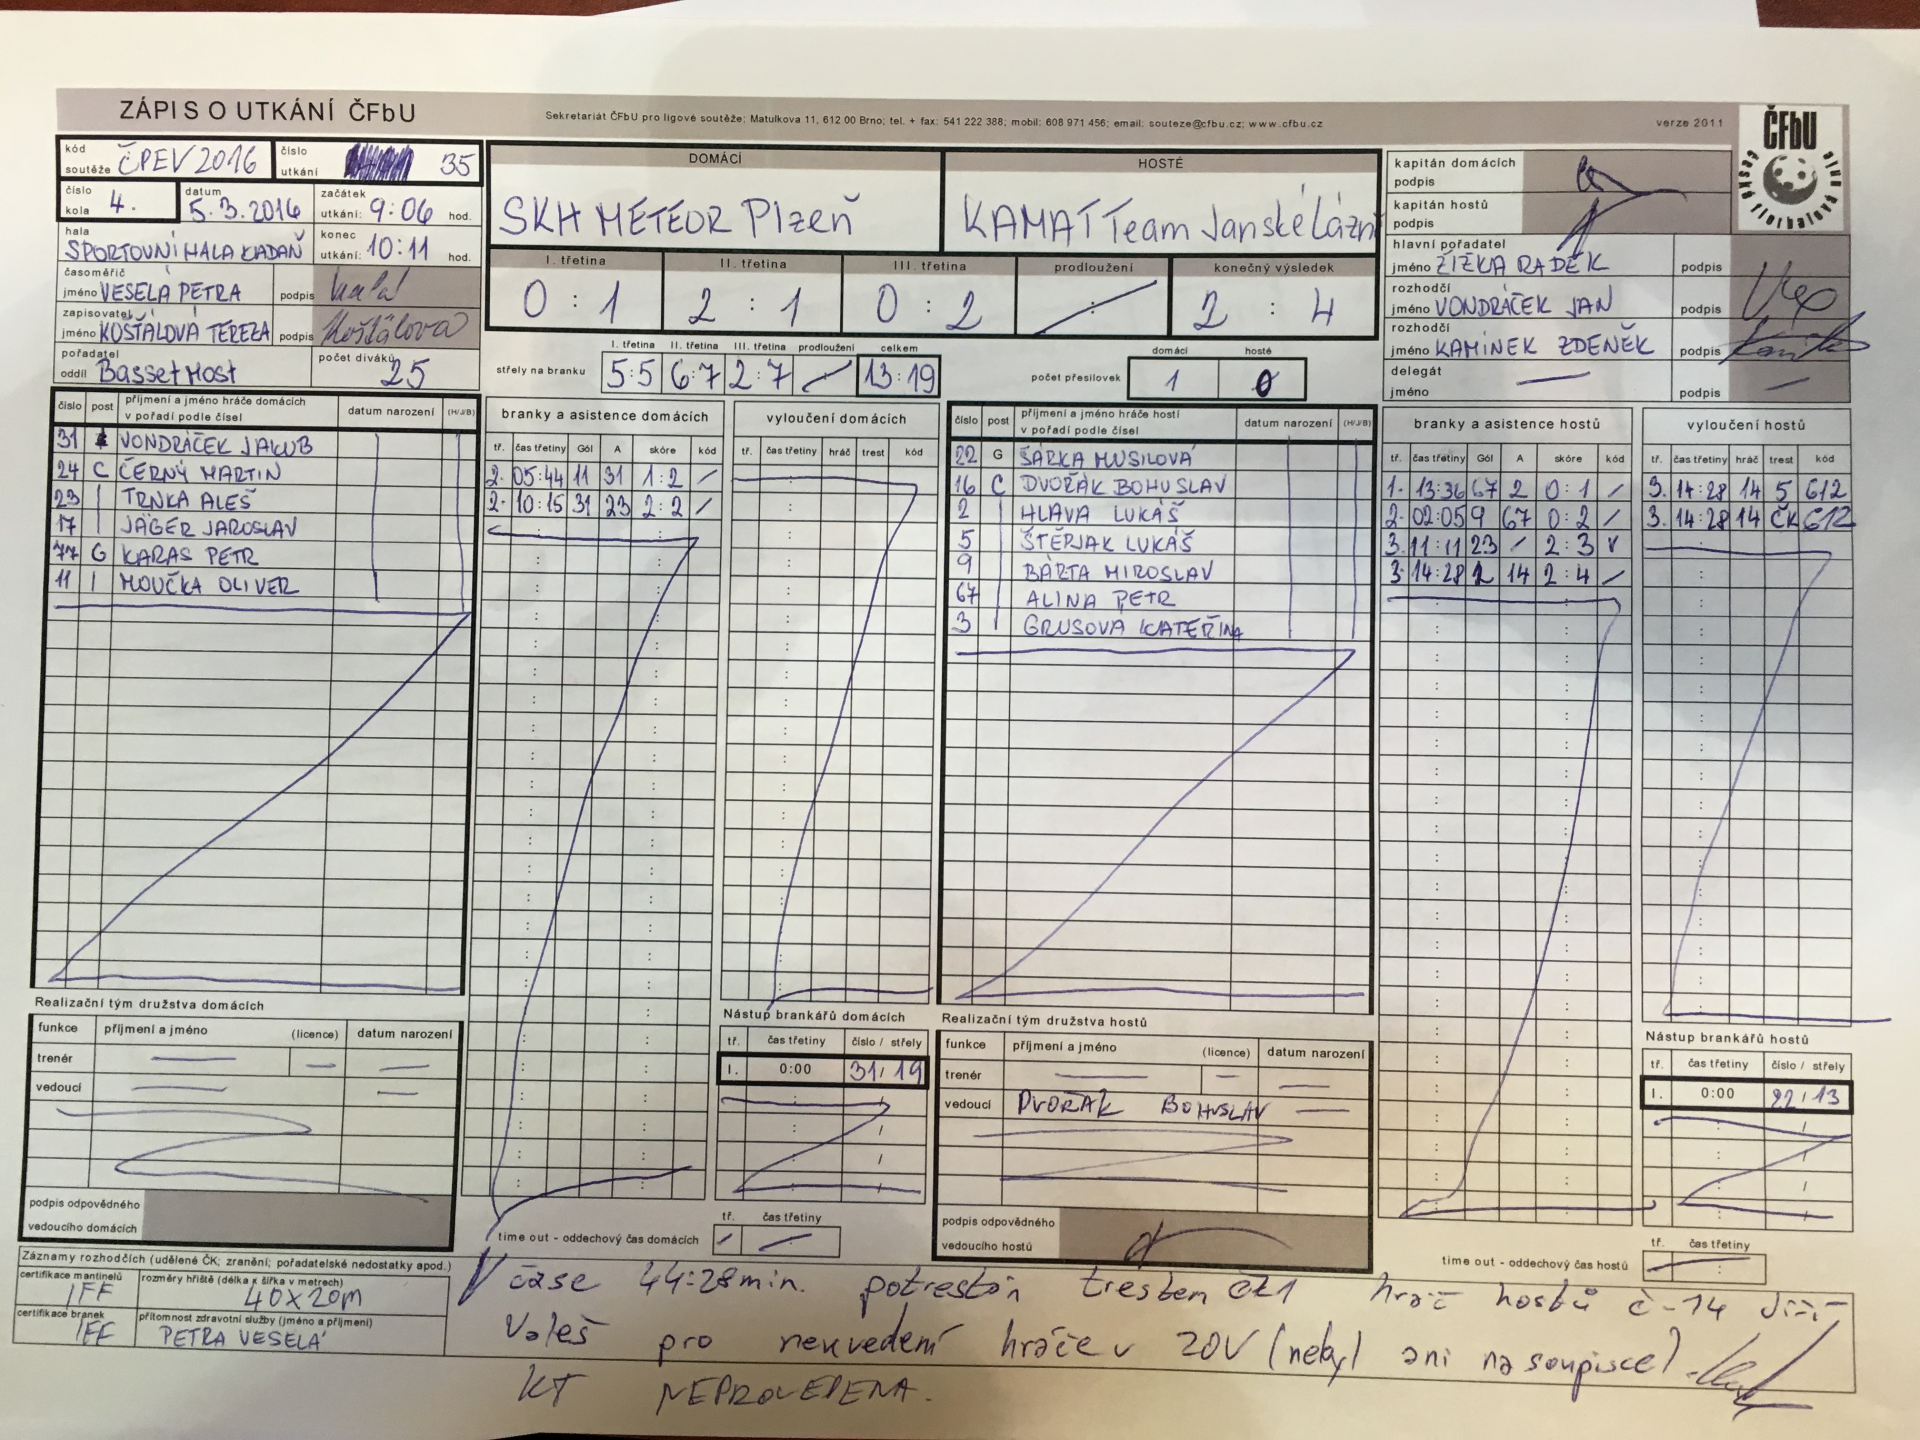 ZÁPIS O UTKÁNÍ ČFbU
Sekretariát ČFbU pro ligové soutěže; Matulkova 11, 612 00 Brno; tel. + fax: 541 222 388; mobil: 608 971 456; email: souteze@cfbu.cz; www.cfbu.cz
verze 2011
ČFbU
česká florbalová unie
kód soutěže ČPEV 2016
číslo utkání 35
číslo kola 4.
datum 5.3.2016
začátek utkání: 9:06 hod.
hala SPORTOVNÍ HALA KADAŇ
konec utkání: 10:11 hod.
časoměřič jméno VESELÁ PETRA podpis
zapisovatel jméno KOŠŤÁLOVÁ TEREZA podpis Košťálová
pořadatel oddíl Basset Most
počet diváků 25
DOMÁCÍ
SKH METEOR Plzeň
HOSTÉ
KAMAT Team Janské Lázně
I. třetina II. třetina III. třetina prodloužení konečný výsledek
0 : 1 2 : 1 0 : 2 : 2 : 4
I. třetina II. třetina III. třetina prodloužení celkem
střely na branku 5:5 6:7 2:7 13:19
domácí hosté
počet přesilovek 1 0
kapitán domácích podpis
kapitán hostů podpis
hlavní pořadatel jméno ŽIŽKA RADEK podpis
rozhodčí jméno VONDRÁČEK JAN podpis
rozhodčí jméno KAMINEK ZDENĚK podpis
delegát jméno — podpis —
číslo post příjmení a jméno hráče domácích v pořadí podle čísel datum narození (H/J/B)
31 VONDRÁČEK JAKUB
24 C ČERNÝ MARTIN
23 TRNKA ALEŠ
17 JÄGER JAROSLAV
77 G KARAS PETR
11 MOUČKA OLIVER
branky a asistence domácích
tř. čas třetiny Gól A skóre kód
2. 05:44 11 31 1:2 /
2. 10:15 31 23 2:2 /
vyloučení domácích
tř. čas třetiny hráč trest kód
číslo post příjmení a jméno hráče hostí v pořadí podle čísel datum narození (H/J/B)
22 G ŠÁRKA MUSILOVÁ
16 C DVOŘÁK BOHUSLAV
2 HLAVA LUKÁŠ
5 ŠTĚPJAK LUKÁŠ
9 BÁRTA MIROSLAV
67 ALINA PETR
3 GRUSOVA KATEŘINA
branky a asistence hostů
tř. čas třetiny Gól A skóre kód
1. 13:36 67 2 0:1 /
2. 02:05 9 67 0:2 /
3. 11:11 23 / 2:3 v
3. 14:28 2 14 2:4 /
vyloučení hostů
tř. čas třetiny hráč trest kód
3. 14:28 14 5 612
3. 14:28 14 ČK 612
Realizační tým družstva domácích
funkce příjmení a jméno (licence) datum narození
trenér — — —
vedoucí — — —
podpis odpovědného vedoucího domácích
Nástup brankářů domácích
tř. čas třetiny číslo / střely
I. 0:00 31 / 19
tř. čas třetiny
time out - oddechový čas domácích
Realizační tým družstva hostů
funkce příjmení a jméno (licence) datum narození
trenér — — —
vedoucí DVOŘÁK BOHUSLAV —
podpis odpovědného vedoucího hostů
Nástup brankářů hostů
tř. čas třetiny číslo / střely
I. 0:00 22 / 13
tř. čas třetiny
time out - oddechový čas hostů
Záznamy rozhodčích (udělené ČK; zranění; pořadatelské nedostatky apod.)
certifikace mantinelů IFF
rozměry hřiště (délka x šířka v metrech) 40x20m
certifikace branek IFF
přítomnost zdravotní služby (jméno a příjmení) PETRA VESELÁ
V čase 44:28min. potrestán trestem ČK1 hráč hostů č-14 Jiří
Valeš pro neuvedení hráče v ZOU (nebyl ani na soupisce)
KT NEPROVEDENA.